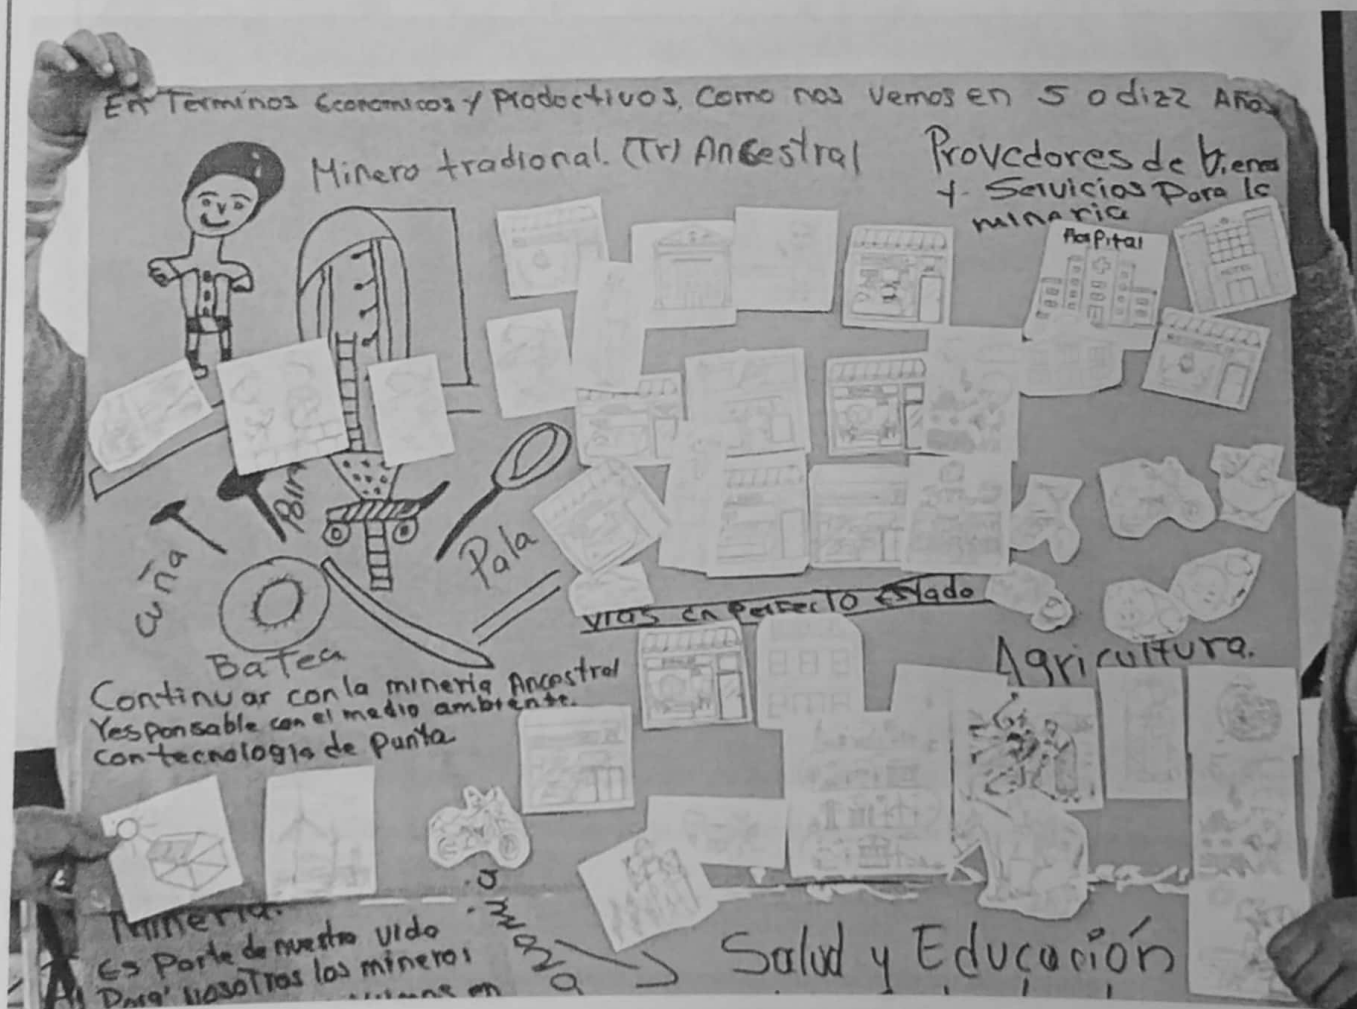 En Terminos Economicos y Productivos, Como nos Vemos en 5 o diez Años
Minero tradional. (Tr) Ancestral
Provedores de bienes
y Servicios Para la
mineria
Hospital
HOTEL
Cuña
Pala
Batea
vias en perfecto estado
Agricultura.
Continuar con la mineria Ancestral
responsable con el medio ambiente.
con tecnologia de punta
Mineria.
Es Parte de nuestra vida
Para nosotros los mineros
en
Salud y Educación